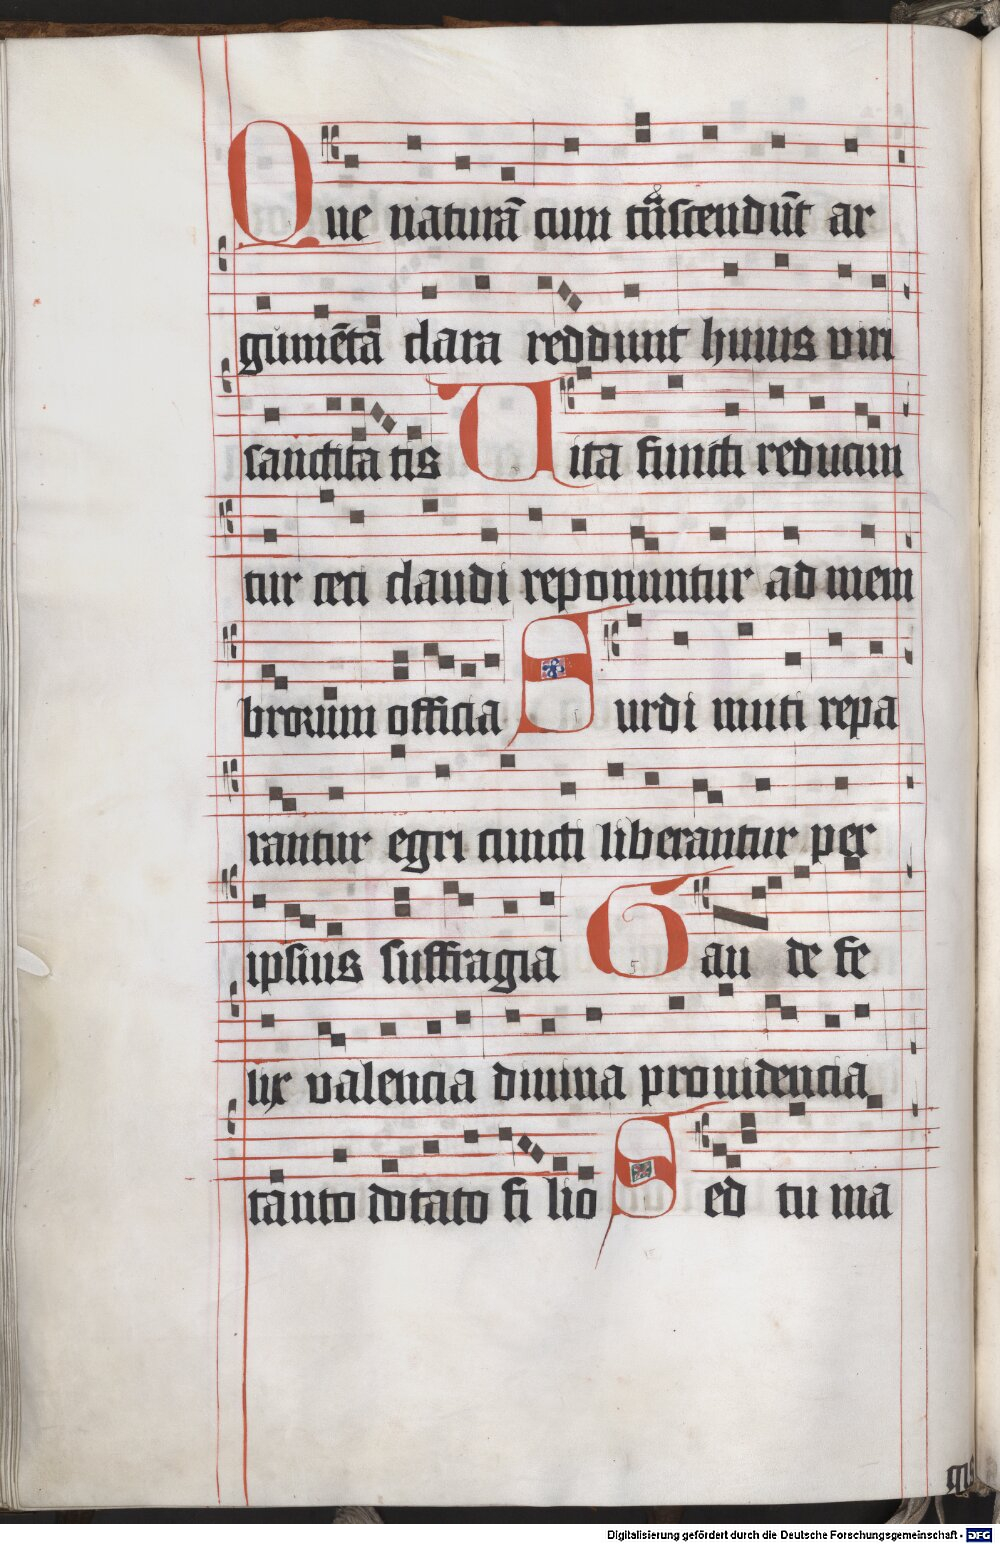 Que naturā cum trāscendūt ar
gumēta clara reddunt huius viri
sanctita tis Uita functi reducun
tur ceci claudi reponuntur ad mem
brorum officia Surdi muti repa
rantur egri cuncti liberantur per
ipsius suffragia Gau de fe
lix valencia diuina prouidencia
tanto dotato fi lio Sed tu ma
Digitalisierung gefördert durch die Deutsche Forschungsgemeinschaft - DFG